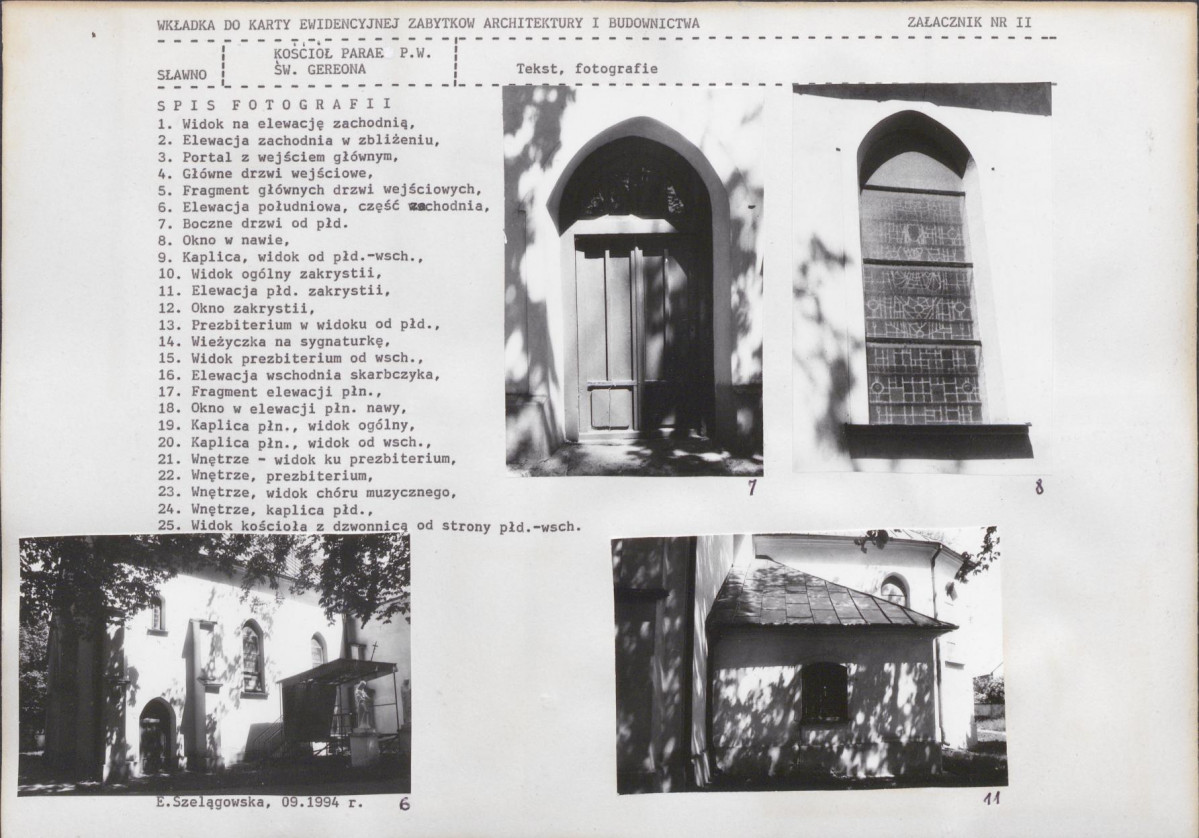 WKŁADKA DO KARTY EWIDENCYJNEJ ZABYTKOW ARCHITEKTURY I BUDOWNICTWA ZAŁACZNIK NR II
KOŚCIÓŁ PARAE P.W.
SŁAWNO ŚW. GEREONA Tekst, fotografie
SPIS FOTOGRAFII
1. Widok na elewację zachodnią,
2. Elewacja zachodnia w zbliżeniu,
3. Portal z wejściem głównym,
4. Główne drzwi wejściowe,
5. Fragment głównych drzwi wejściowych,
6. Elewacja południowa, część zachodnia,
7. Boczne drzwi od płd.
8. Okno w nawie,
9. Kaplica, widok od płd.-wsch.,
10. Widok ogólny zakrystii,
11. Elewacja płd. zakrystii,
12. Okno zakrystii,
13. Prezbiterium w widoku od płd.,
14. Wieżyczka na sygnaturkę,
15. Widok prezbiterium od wsch.,
16. Elewacja wschodnia skarbczyka,
17. Fragment elewacji płn.,
18. Okno w elewacji płn. nawy,
19. Kaplica płn., widok ogólny,
20. Kaplica płn., widok od wsch.,
21. Wnętrze - widok ku prezbiterium,
22. Wnętrze, prezbiterium,
23. Wnętrze, widok chóru muzycznego,
24. Wnętrze, kaplica płd.,
25. Widok kościoła z dzwonnicą od strony płd.-wsch.
7
8
E.Szelągowska, 09.1994 r. 6
11